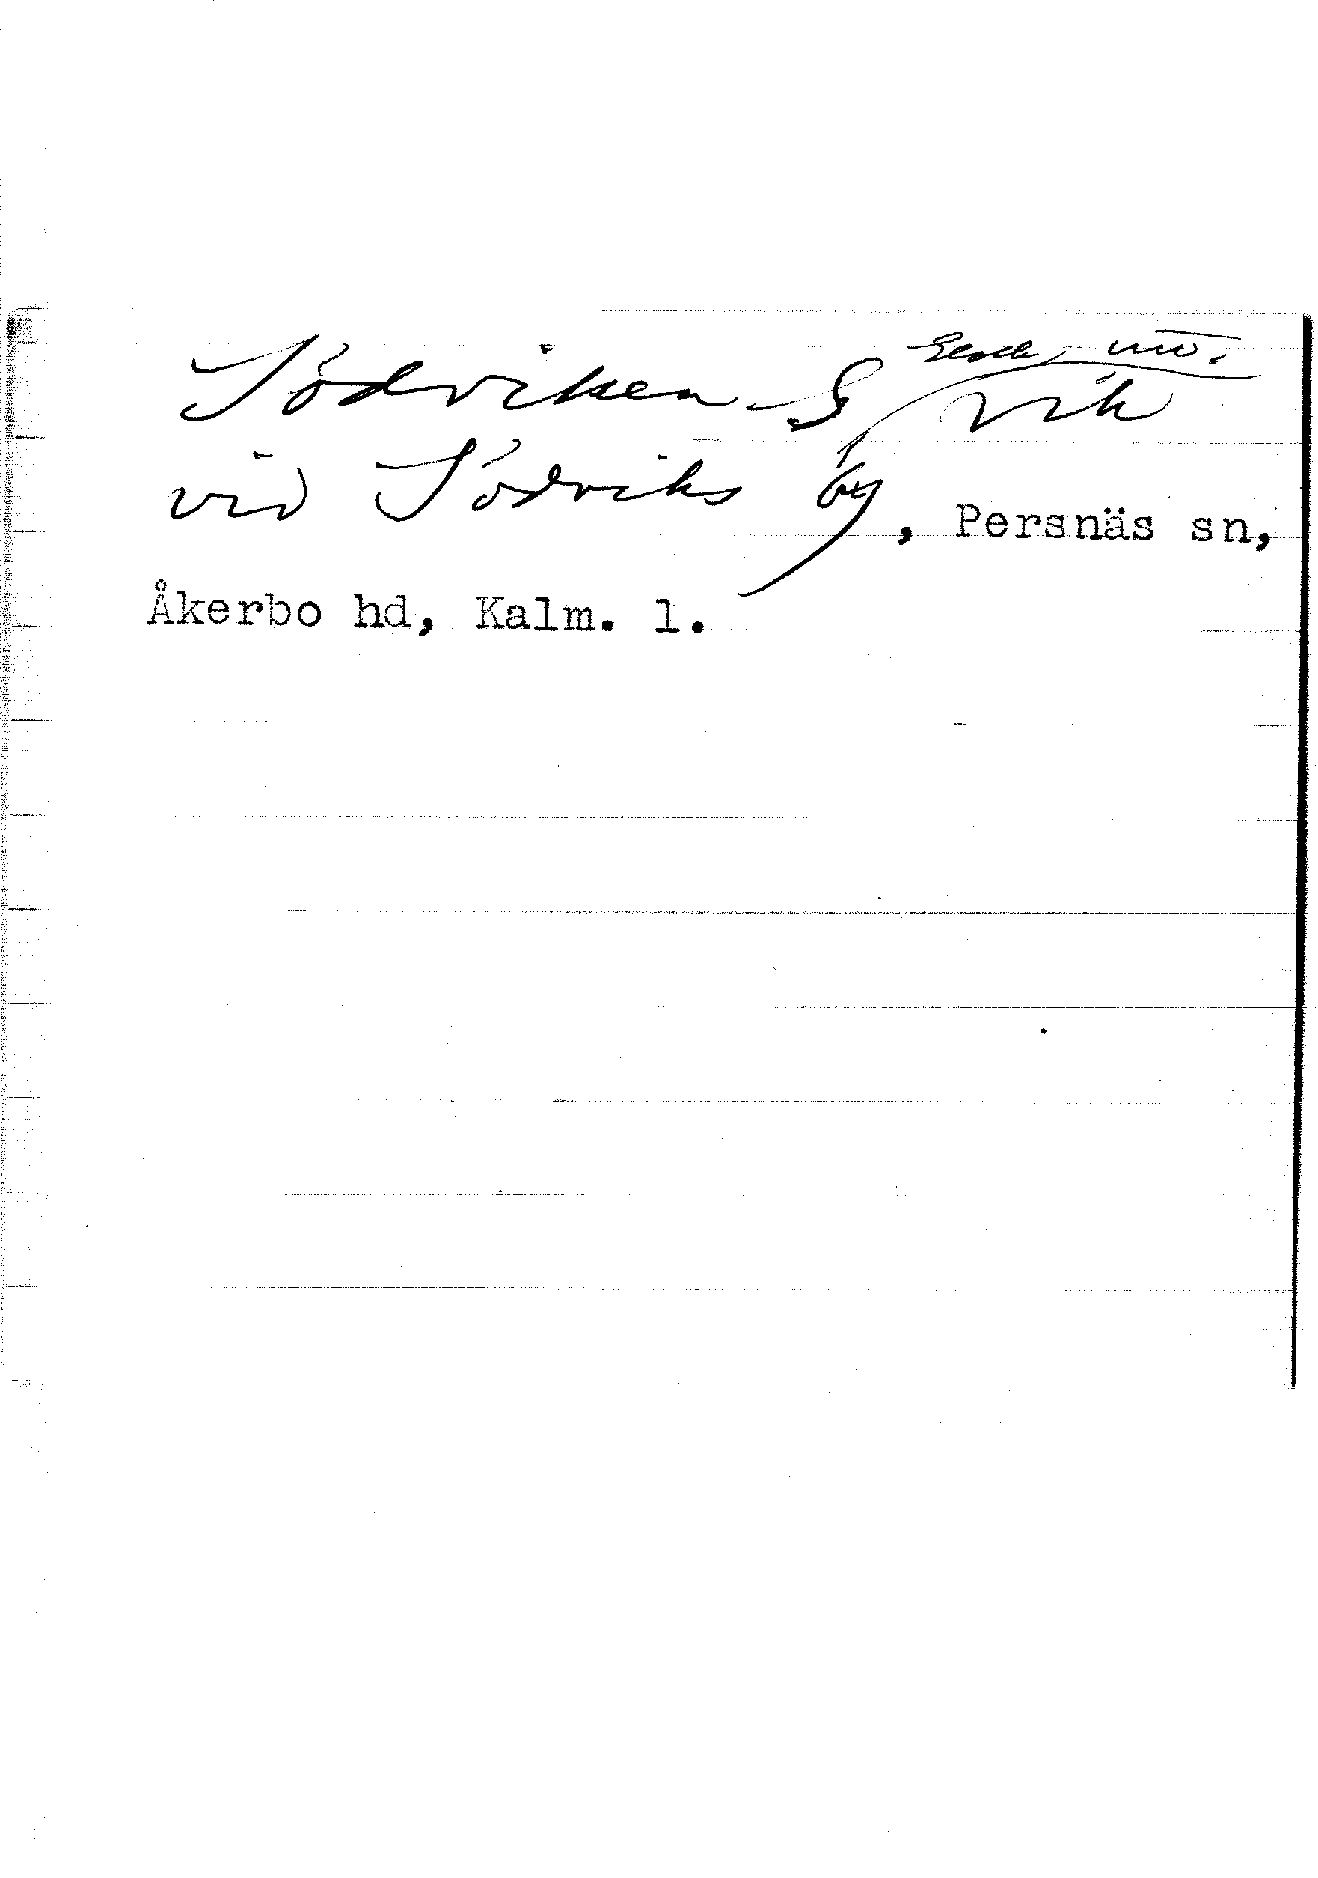 Södviken vik
vid Södviks by, Persnäs sn,
Åkerbo hd, Kalm. l.